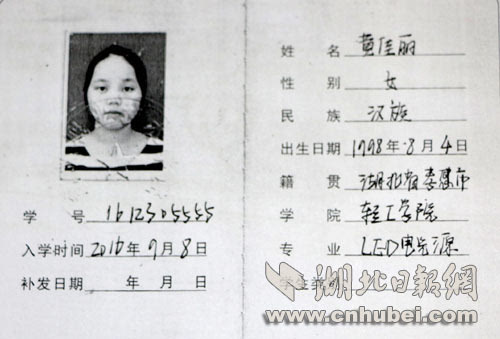 学 号 1612305555
入学时间 2016年9月8日
补发日期 年 月 日
姓 名 黄佳丽
性 别 女
民 族 汉族
出生日期 1998年8月4日
籍 贯 湖北省孝感市
学 院 轻工学院
专 业 LED电光源
学生类别
湖北日报網
www.cnhubei.com